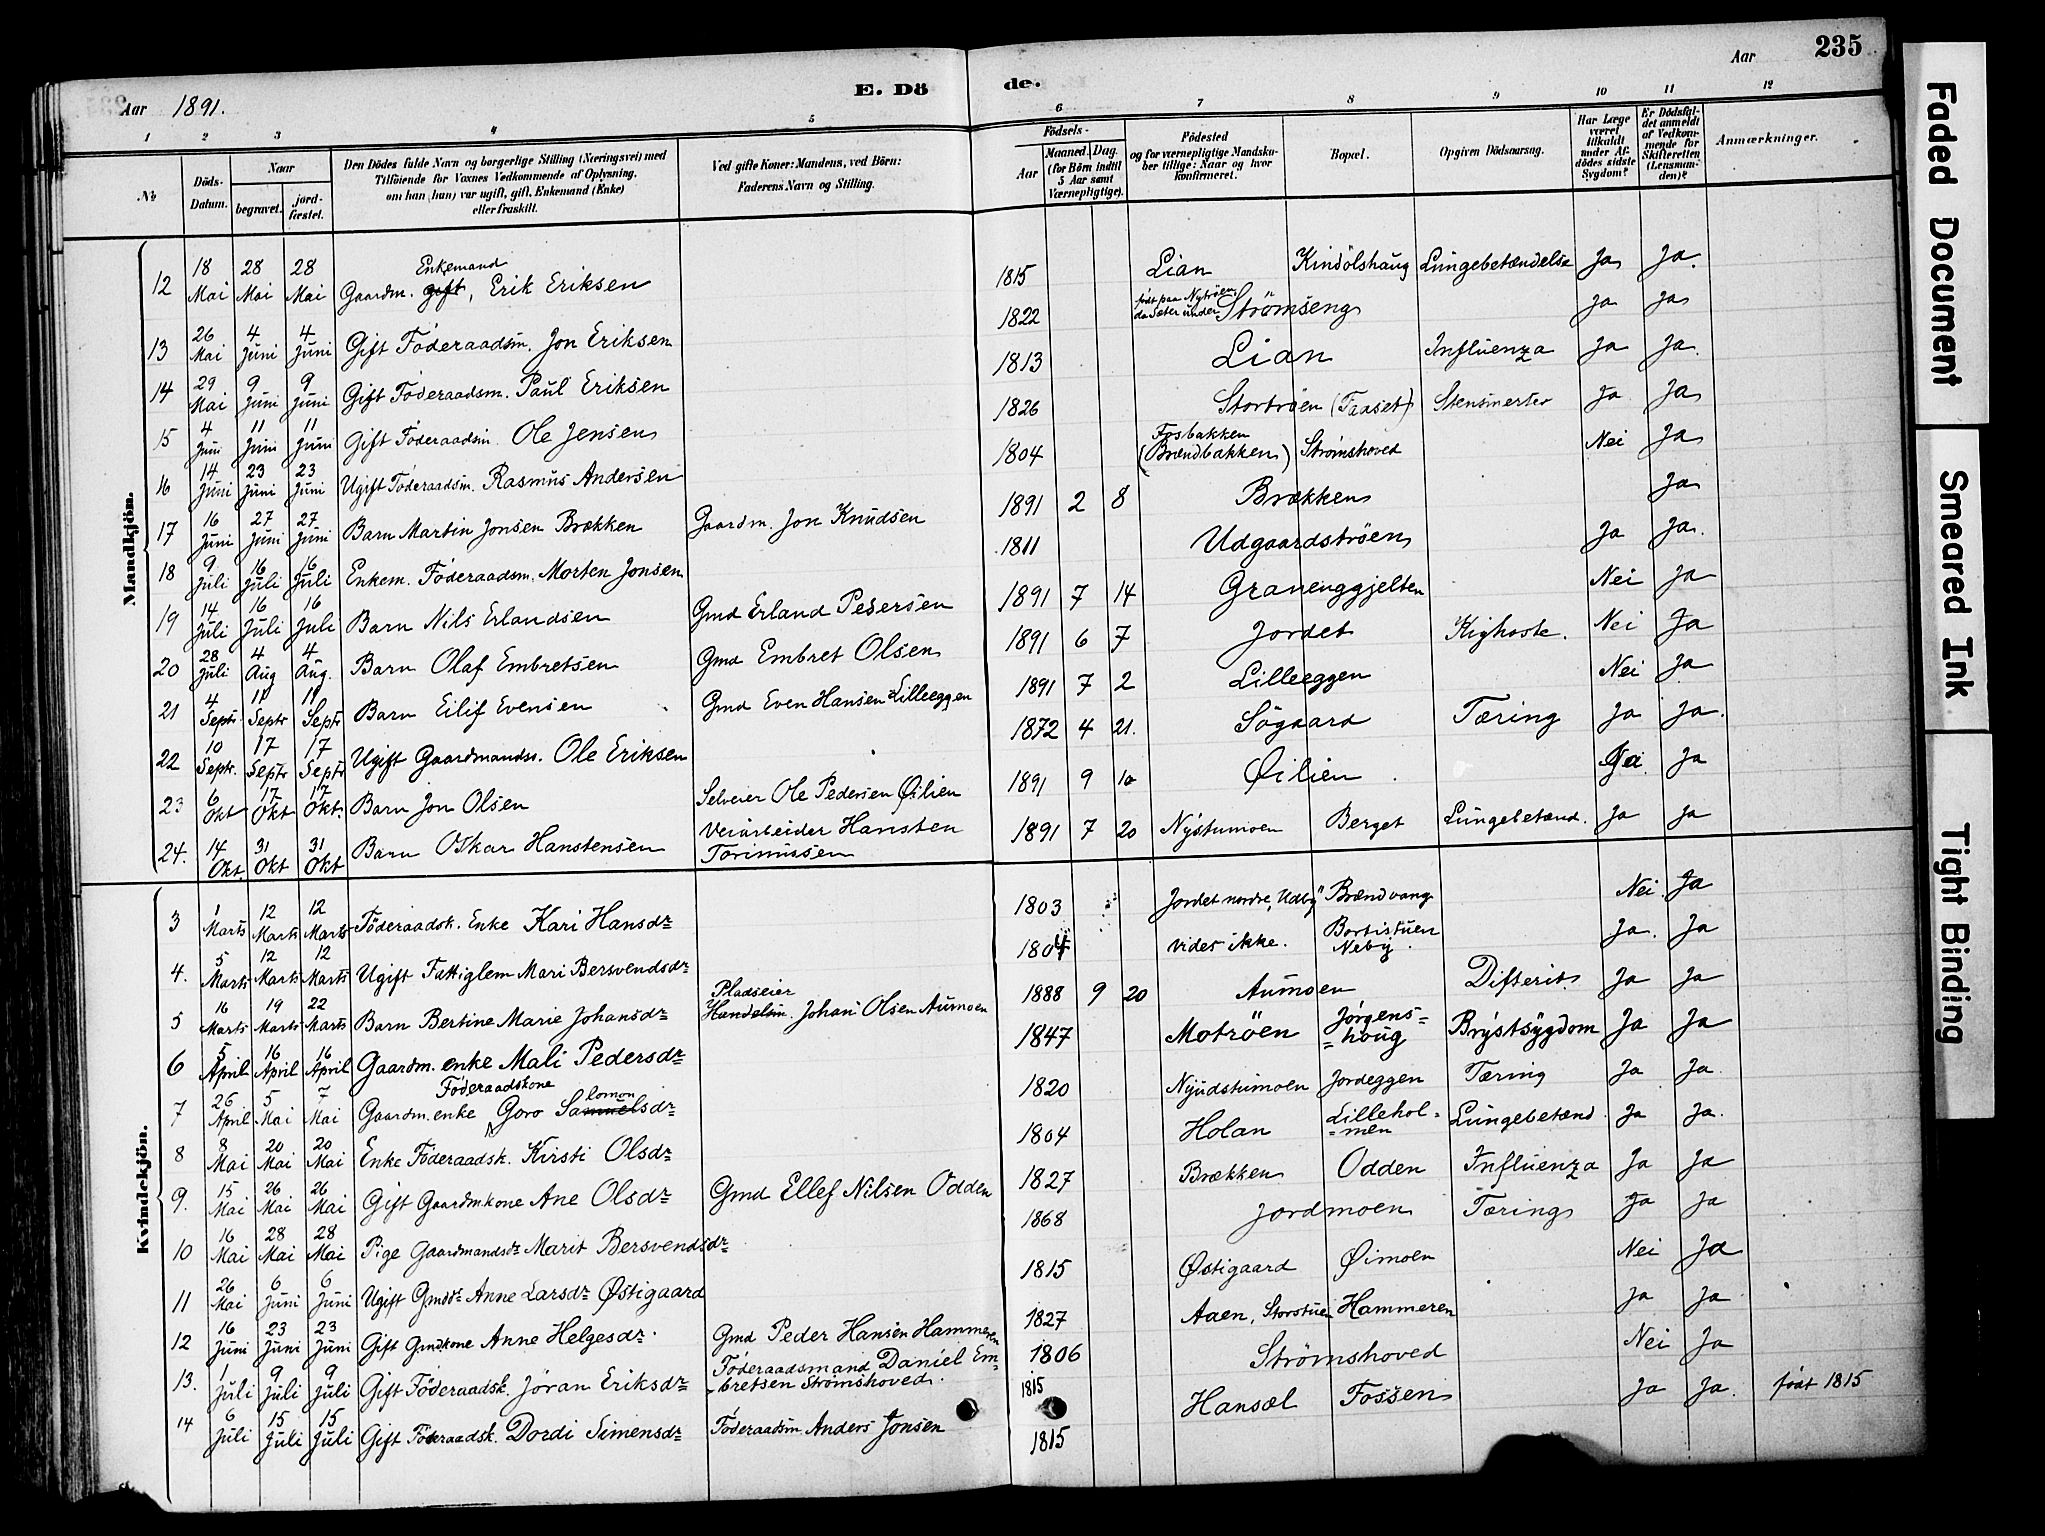 235
Aar 1891. E. Dö de. Aar
1 2 3 4 5 6 7 8 9 10 11 12
№ Döds-Datum. Naar begravet. jord-fæstet. Den Dödes fulde Navn og borgerlige Stilling (Næringsvei) med Tilföiende for Voxnes Vedkommende af Oplysning, om han (hun) var ugift, gift, Enkemand (Enke) eller fraskilt. Ved gifte Koner: Mandens, ved Börn: Faderens Navn og Stilling. Födsels- Aar Maaned. Dag. (for Börn indtil 5 Aar samt Værnepligtige). Födested og for værnepligtige Mandskaber tillige: Naar og hvor konfirmeret. Bopæl. Opgiven Dödsaarsag. Har Læge været tilkaldt under Afdödes sidste Sygdom? Er Dödsfaldet anmeldt af Vedkommende for Skifteretten (Lensmanden)? Anmærkninger.
Mandkjön.
12 18 Mai 28 Mai 28 Mai Gaardm. gift, Enkemand Erik Eriksen 1815 Lian Kindölshaug Lungebetændelse Ja Ja.
13 26 Mai 4 Juni 4 Juni Gift Föderaadsm. Jon Eriksen 1822 født paa Nytröen da Sæter under Strömseng Ja Ja
14 29 Mai 9 Juni 9 Juni Gift Föderaadsm. Paul Eriksen 1813 Lian Influenza Ja Ja.
15 4 Juni 11 Juni 11 Juni Gift Föderaadsm. Ole Jensen 1826 Stortröen (Faaset) Stensmerter Ja Ja
16 14 Juni 23 Juni 23 Juni Ugift Föderaadsm. Rasmus Andersen 1804 Fosbakken (Brændbakken) Strömshoved Nei Ja
17 16 Juni 27 Juni 27 Juni Barn Martin Jonsen Brækken Gaardm. Jon Knudsen 1891 2 8 Brækken Ja
18 9 Juli 16 Juli 16 Juli Enkem. Föderaadsm. Morten Jonsen 1811 Udgaardströen Ja Ja.
19 14 Juli 16 Juli 16 Juli Barn Nils Erlandsen Gmd Erland Pedersen 1891 7 14 Granenggjelten Nei Ja
20 28 Juli 4 Aug 4 Aug. Barn Olaf Embretsen Gmd Embret Olsen 1891 6 7 Jordet Kighoste. Nei Ja
21 4 Septr. 11 Septr 11 Septr Barn Eilif Evensen Gmd Even Hansen Lilleeggen 1891 7 2 Lilleeggen Nei Ja
22 10 Septr. 17 Septr 17 Septr Ugift Gaardmands. Ole Eriksen 1872 4 21. Sögaard Tæring Ja Ja.
23 6 Okt 17 Okt 17 Okt. Barn Jon Olsen Selveier Ole Pedersen Øilien 1891 9 10 Øilien Ja
24. 14 Okt 31 Okt 31 Okt Barn Oskar Hanstensen Veiarbeider Hansten 1891 7 20 Nystumoen Berget Lungebetænd. Ja Ja
Kvindekjön.
3 1 Marts 12 Marts 12 Marts Föderaadsk. Enke Kari Hansdr 1803 Jordet nordre, Udby Brændvang Nei Ja
4. 5 Marts 12 Marts 12 Marts Ugift Fattiglem Mari Bersvendsdr 1804 vides ikke. Bortistuen Neby. Ja. Ja
5 16 Marts 19 Marts 22 Marts Barn Bertine Marie Johansdr Pladseier Handelsm. Johan Olsen Aumoen 1888 9 20 Aumoen Difterit Ja Ja
6 5 April 16 April 16 April Gaardm. enke Mali Pedersdr 1847 Moträen Jörgens=houg Brystsygdom Ja Ja
7 26 April 5 Mai 7 Mai Gaardm. enke Föderaadskone Goro Samuelsdr lomon 1820 Nyudstumoen Jordeggen Tæring Ja Ja
8 8 Mai 20 Mai 20 Mai Enke Föderaadsk. Kirsti Olsdr 1804 Holan Lillehol=men Lungebetænd. Ja Ja.
9. 15 Mai 26 Mai 26 Mai Gift Gaardmkone Ane Olsdr Gmd Ellef Nilsen Odden 1827 Brækken Odden Influenza Ja Ja
10 16 Mai 28 Mai 28 Mai Pige Gaardmandsdr Marit Bersvendsdr 1868 Jordmoen Tæring Ja Ja
11 26 Mai 6 Juni 6 Juni Ugift Gmddr Anne Larsdr Østigaard 1815 Østigaard Øimoen Nei Ja
12 16 Juni 23 Juni 23 Juni Gift Gmdkone Anne Helgesdr. Gmd Peder Hansen Hammeren 1827 Aaen, Storstuen Hammeren Ja Ja
13. 1 Juli 9 Juli 9 Juli Gift Föderaadsk. Jöran Eriksdr Föderaadsmand Daniel Em=bretsen Strömshoved. 1806 Strömshoved Nei Ja
14 6 Juli 15 Juli 15 Juli Gift Föderaadsk. Dordi Simensdr Föderaadsm. Anders Jonsen 1815 1815 Hansæl Fossen Ja Ja. født 1815
Faded Document
Smeared Ink
Tight Binding